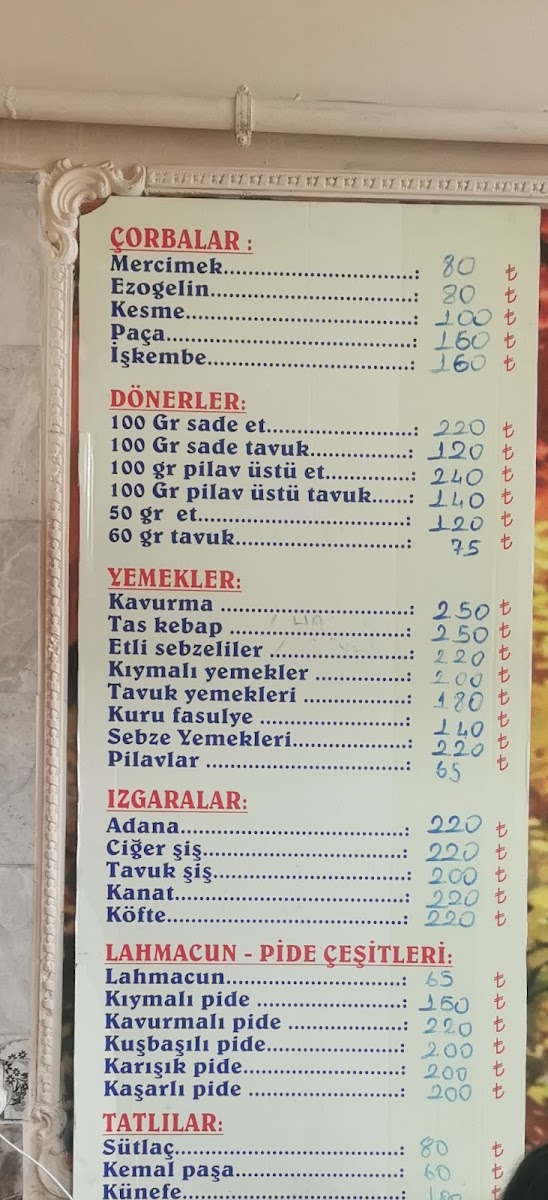 ÇORBALAR :
Mercimek..............................: 80 ₺
Ezogelin................................: 80 ₺
Kesme...................................: 100 ₺
Paça......................................: 160 ₺
İşkembe................................: 160 ₺
DÖNERLER:
100 Gr sade et.......................: 220 ₺
100 Gr sade tavuk................: 120 ₺
100 gr pilav üstü et..............: 240 ₺
100 Gr pilav üstü tavuk......: 140 ₺
50 gr et.................................: 120 ₺
60 gr tavuk...........................: 75 ₺
YEMEKLER:
Kavurma .............................: 250 ₺
Tas kebap ............................: 250 ₺
Etli sebzeliler ......................: 220 ₺
Kıymalı yemekler ...............: 200 ₺
Tavuk yemekleri .................: 180 ₺
Kuru fasulye .......................: 140 ₺
Sebze Yemekleri..................: 220 ₺
Pilavlar ................................: 65 ₺
IZGARALAR:
Adana...................................: 220 ₺
Ciğer şiş................................: 220 ₺
Tavuk şiş..............................: 200 ₺
Kanat....................................: 220 ₺
Köfte.....................................: 220 ₺
LAHMACUN - PİDE ÇEŞİTLERİ:
Lahmacun............................: 65 ₺
Kıymalı pide .......................: 160 ₺
Kavurmalı pide ..................: 220 ₺
Kuşbaşılı pide.....................: 200 ₺
Karışık pide.........................: 200 ₺
Kaşarlı pide ........................: 200 ₺
TATLILAR:
Sütlaç....................................: 80 ₺
Kemal paşa..........................: 60 ₺
Künefe..................................: ₺